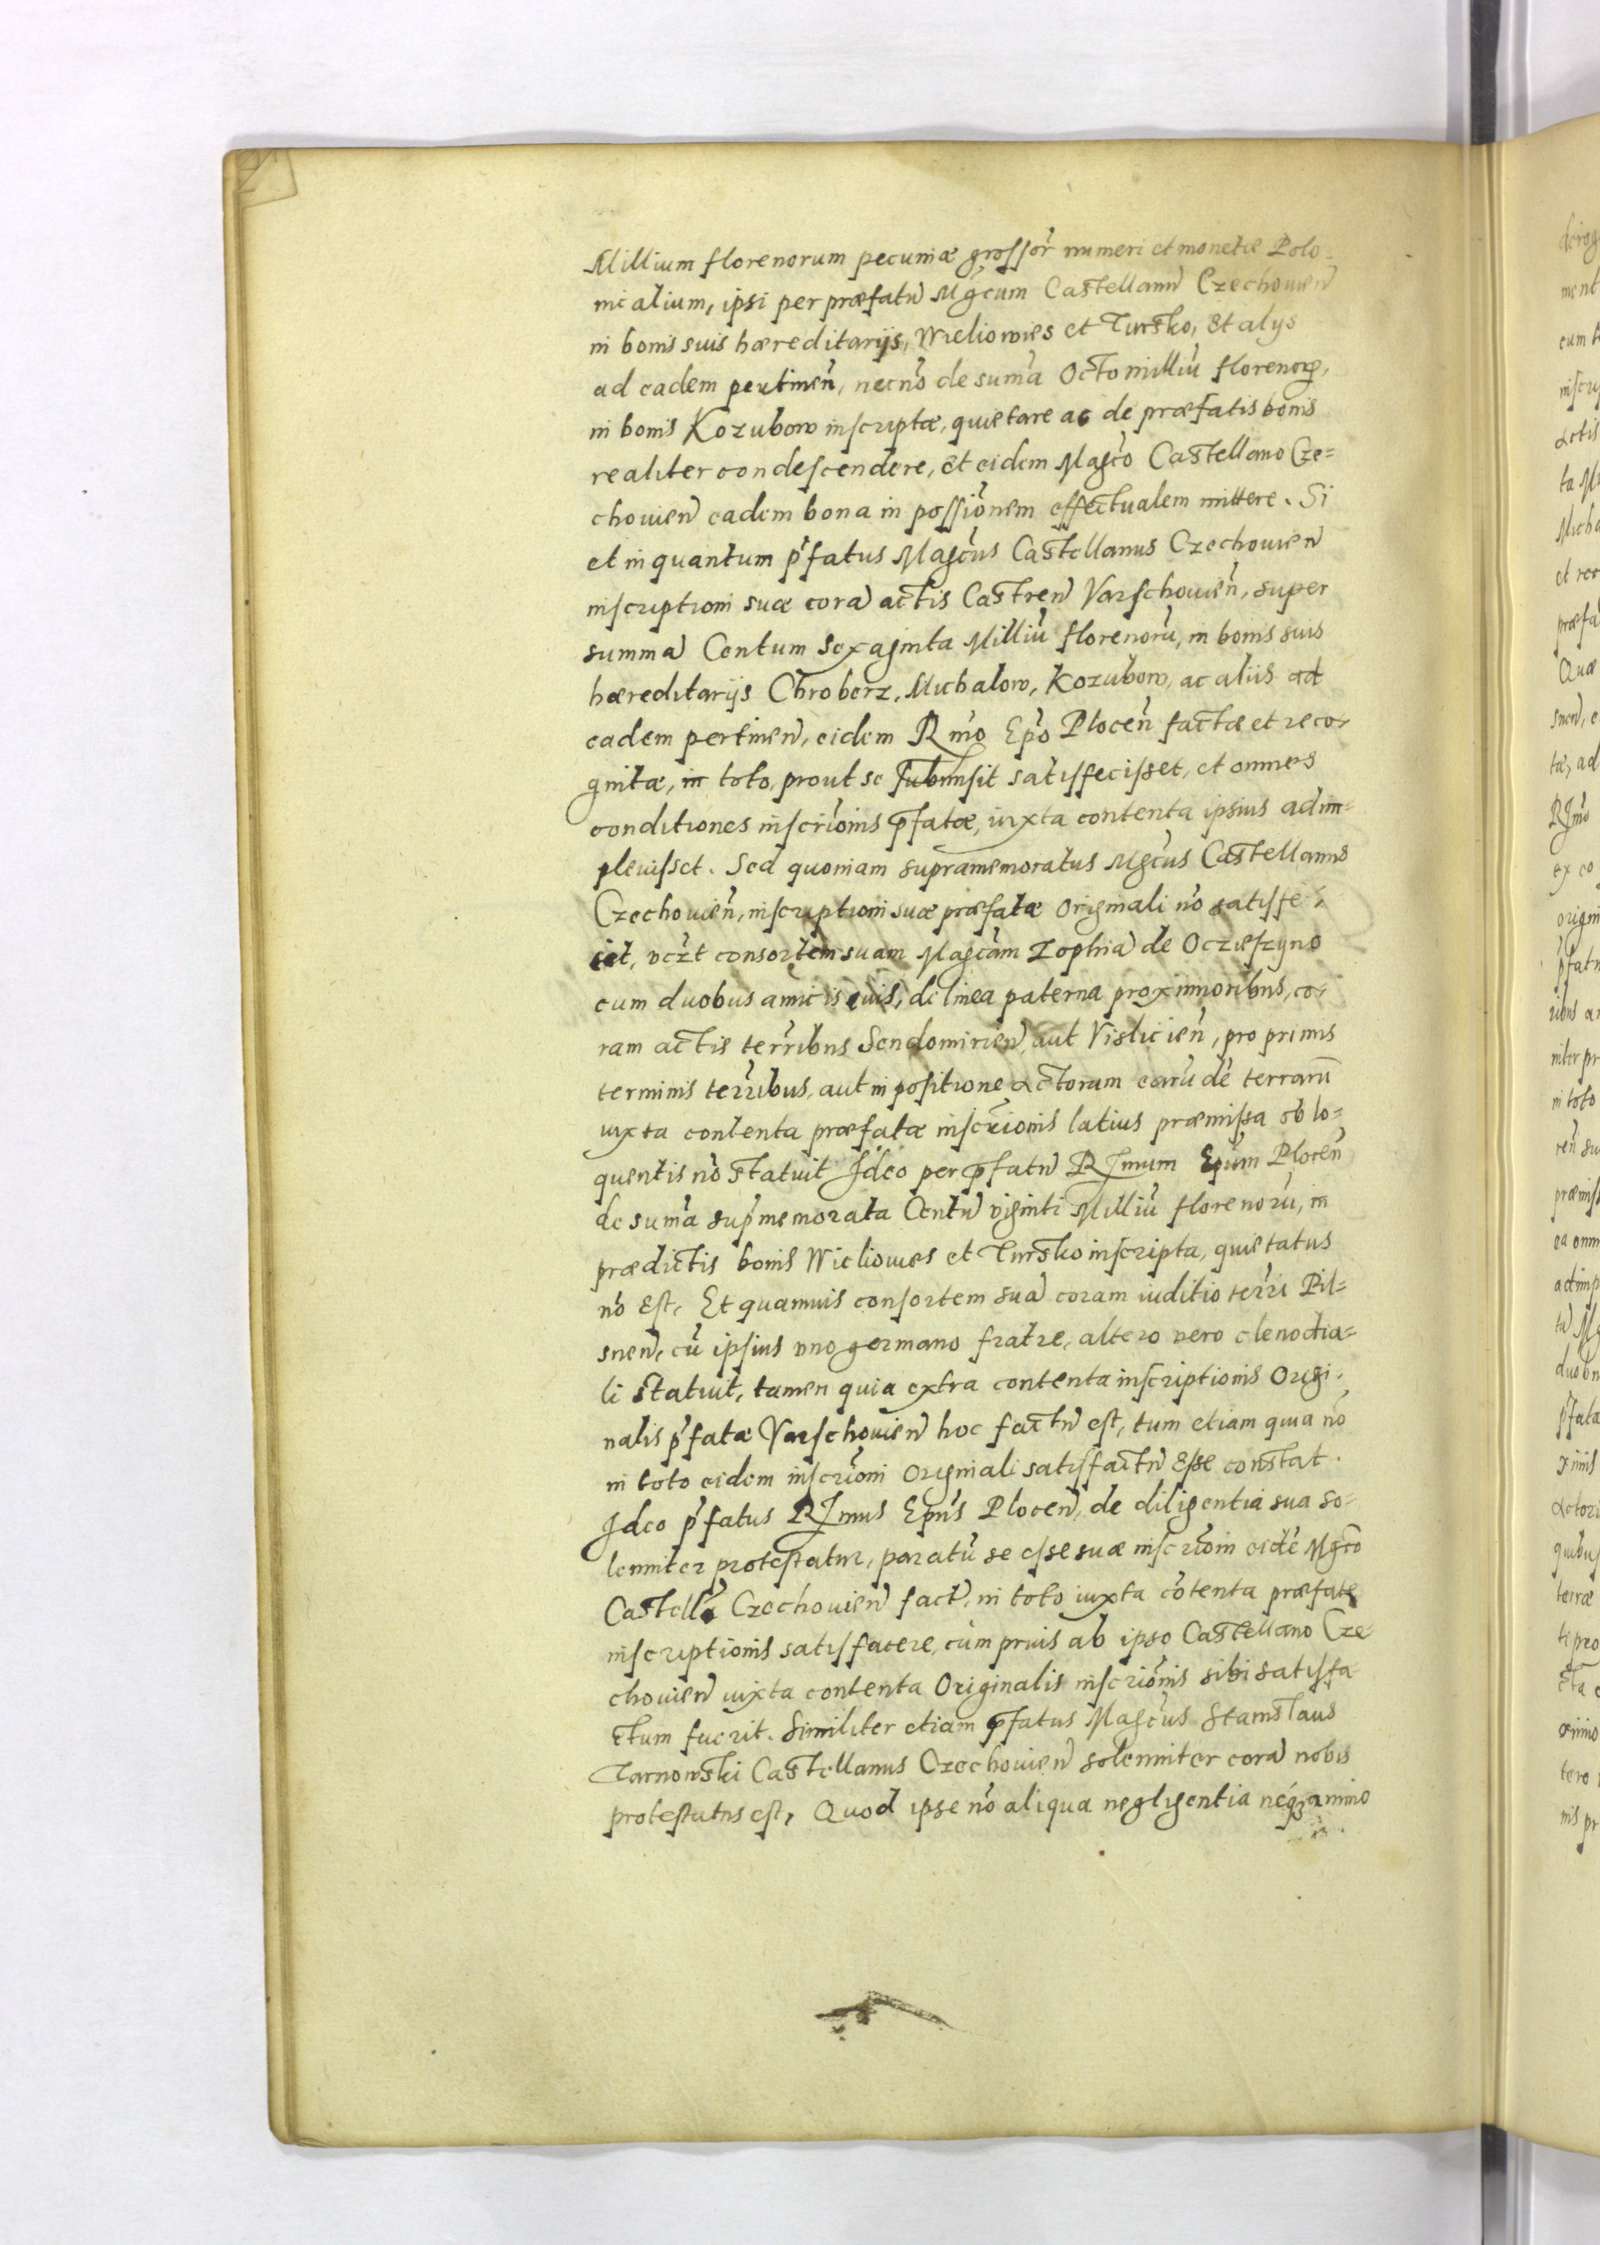 Millium florenorum pecuniæ grossor̃ numeri et monetæ Polo-
nicalium, ipsi per præfatũ Mgcum Castellanũ Czechouieñ
in bonis suis hæreditarijs, Wieliowies et Tursko, Et alys
ad eadem pertineñ, necnõ de sum̃a Octo milliũ florenoꝝ,
in bonis Kozubow inscriptæ, quietare ac de præfatis bonis
realiter condescendere, Et eidem Magco Castellano Cze-
chouieñ eadem bona in possiõnem effectualem mittere. Si
et in quantum p̃fatus Magcus Castellanus Czechouieñ
inscriptioni suæ corã actis Castreñ Varschouieñ, super
summã Centum Sexaginta Milliũ florenorũ, in bonis suis
hæreditarijs Chroberz, Michalow, Kozubow, ac aliis ad
eadem pertineñ, eidem Rmõ Epõ Ploceñ factæ et reco-
gnitæ, in toto, prout se submisit satisfecisset, et omnes
conditiones inscriõnis p̃fatæ, iuxta contenta ipsius adim-
pleuisset. Sed quoniam supramemoratus Mgcus Castellanus
Czechouieñ, inscriptioni suæ præfatæ Originali nõ satisfe-
cit, vczt consortem suam Magcam Zophiã de Oczieszyno
cum duobus amicis suis, de linea paterna proximioribus, co-
ram actis terr̃ibus Sendomirieñ, aut Vislicieñ, pro primis
terminis terr̃ibus, aut in positione Actorum earũdẽ terrarũ
iuxta contenta præfatæ inscriõnis latius præmissa ob lo-
quentis nõ statuit Ideo per p̃fatũ RJmum Epũm Ploceñ
de sum̃a sup̃memorata Centũ viginti Milliũ florenorũ, in
prædictis bonis Wieliowies et Tursko inscripta, quietatus
nõ Est. Et quamuis consortem suã coram iuditio terr̃i Pil-
sneñ, cũ ipsius vno germano fratre, altero vero clenodia-
li statuit, tamen quia extra contenta inscriptionis Origi-
nalis p̃fatæ Varschouieñ hoc factũ est, tum etiam quia nõ
in toto eidem inscriõni Originali satisfactũ Esse constat.
Ideo p̃fatus RJmus Epũs Ploceñ, de diligentia sua so-
lenniter protestatur, paratũ se esse suæ inscriõni eidẽ Mgco
Castellõ Czechouieñ factæ, in toto iuxta cõtenta præfatæ
inscriptionis satisfacere, cum prius ab ipso Castellano Cze-
chouieñ iuxta contenta Originalis inscriõnis sibi satisfa-
ctum fuerit. Similiter etiam p̃fatus Magcus Stanislaus
Tarnowski Castellanus Czechouieñ solenniter corã nobis
protestatus est, Quod ipse nõ aliqua negligentia neqꝫ animo